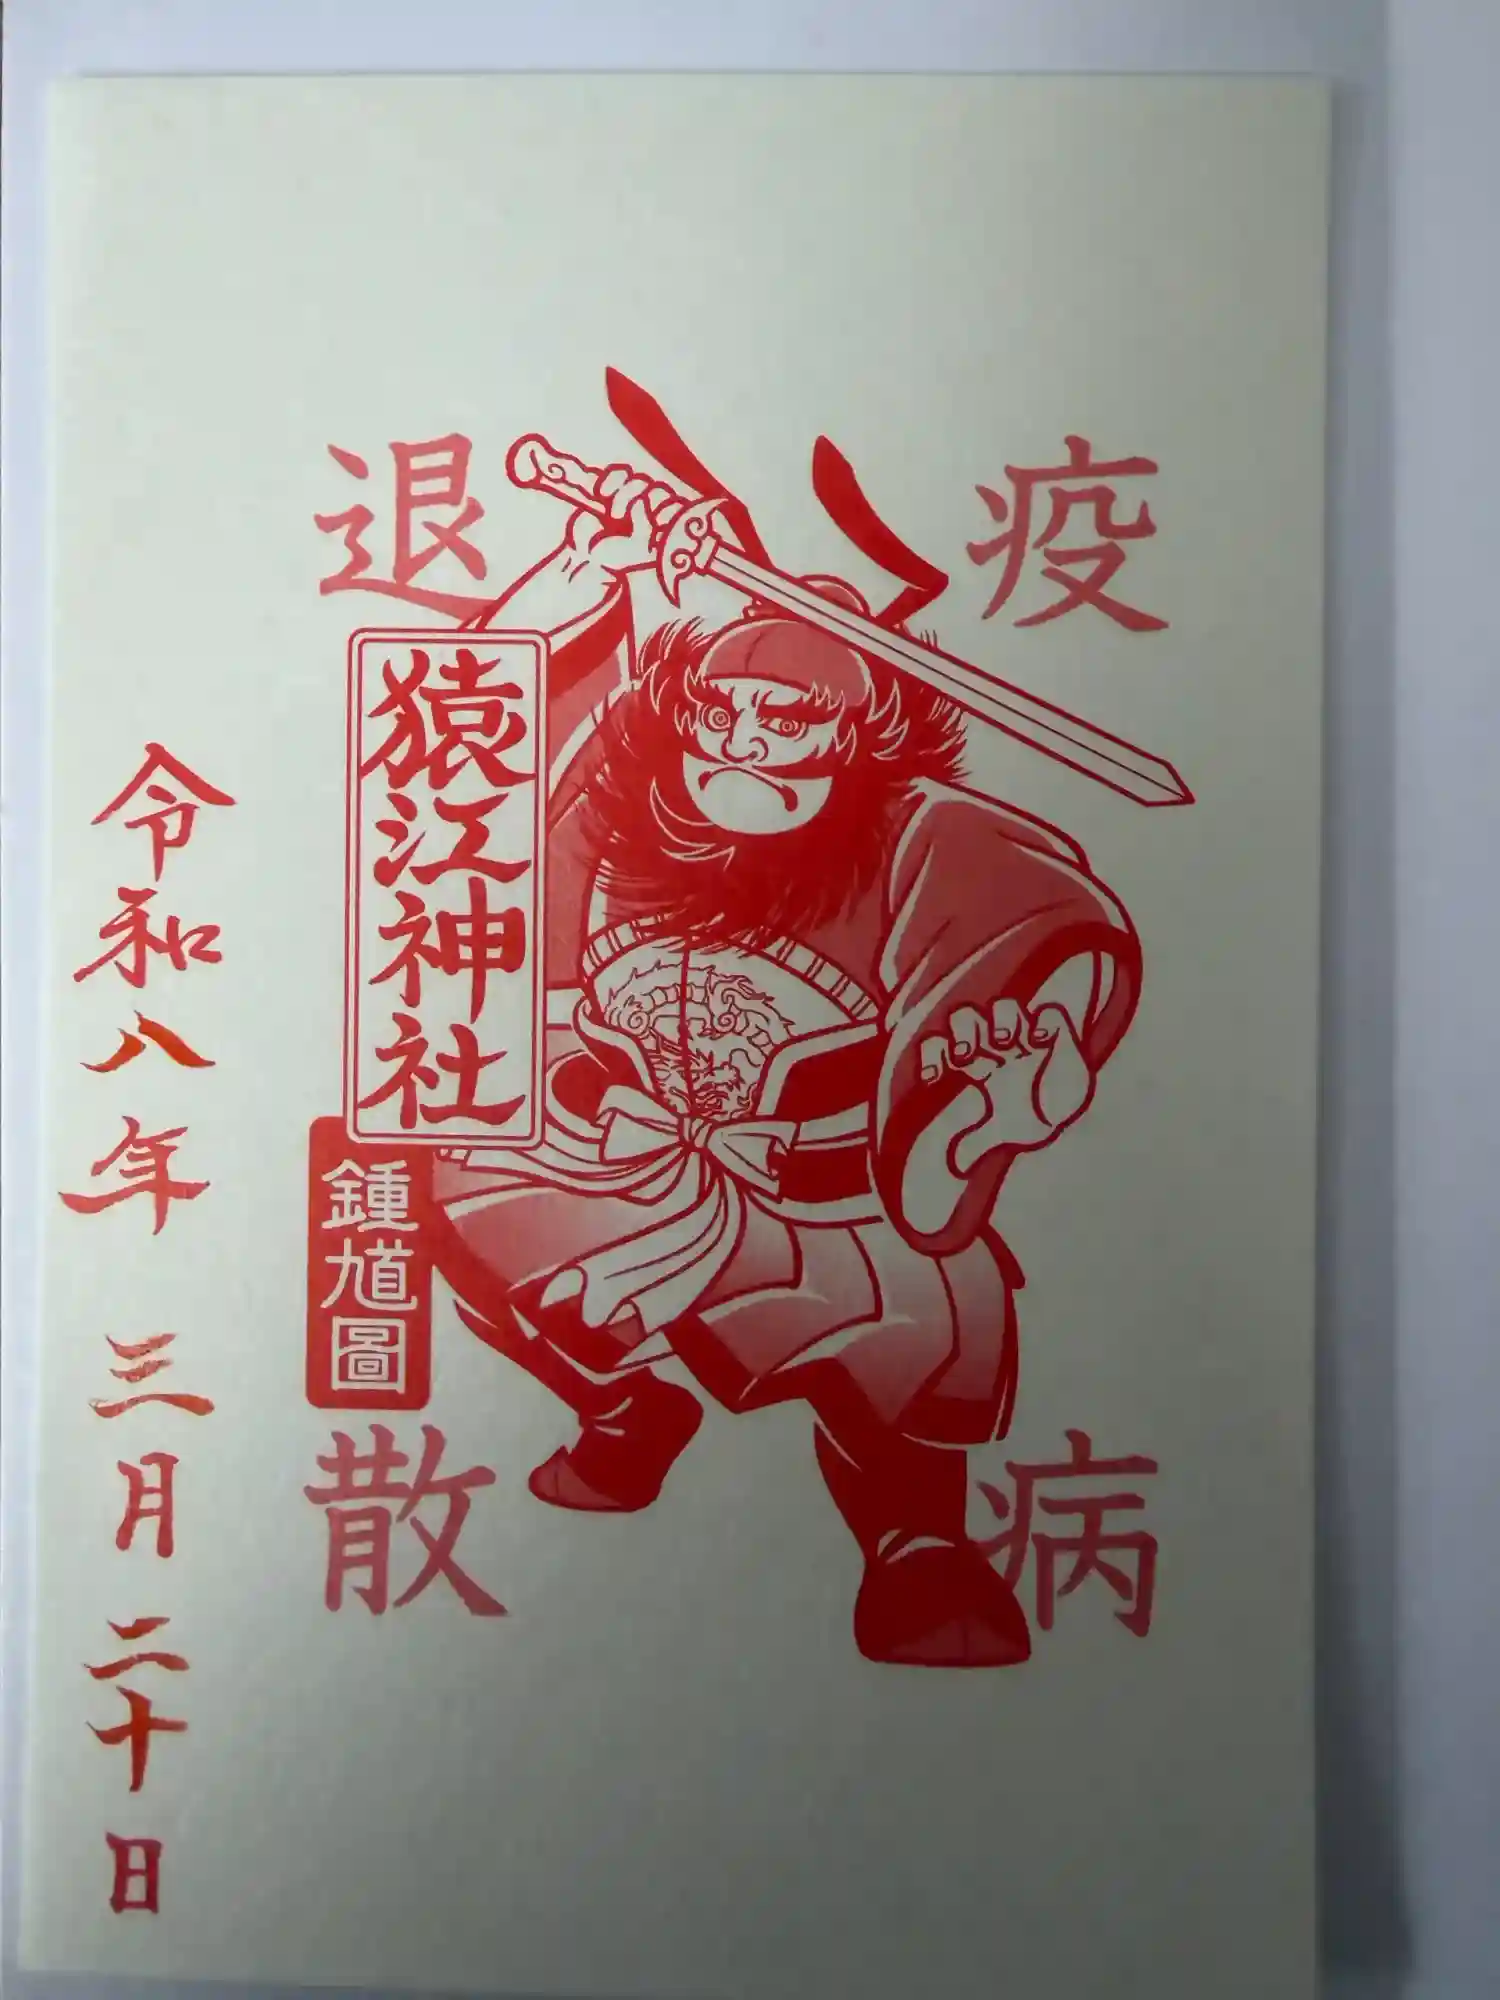 疫病
退散
猿江神社
鍾馗圖
令和八年 三月 二十日